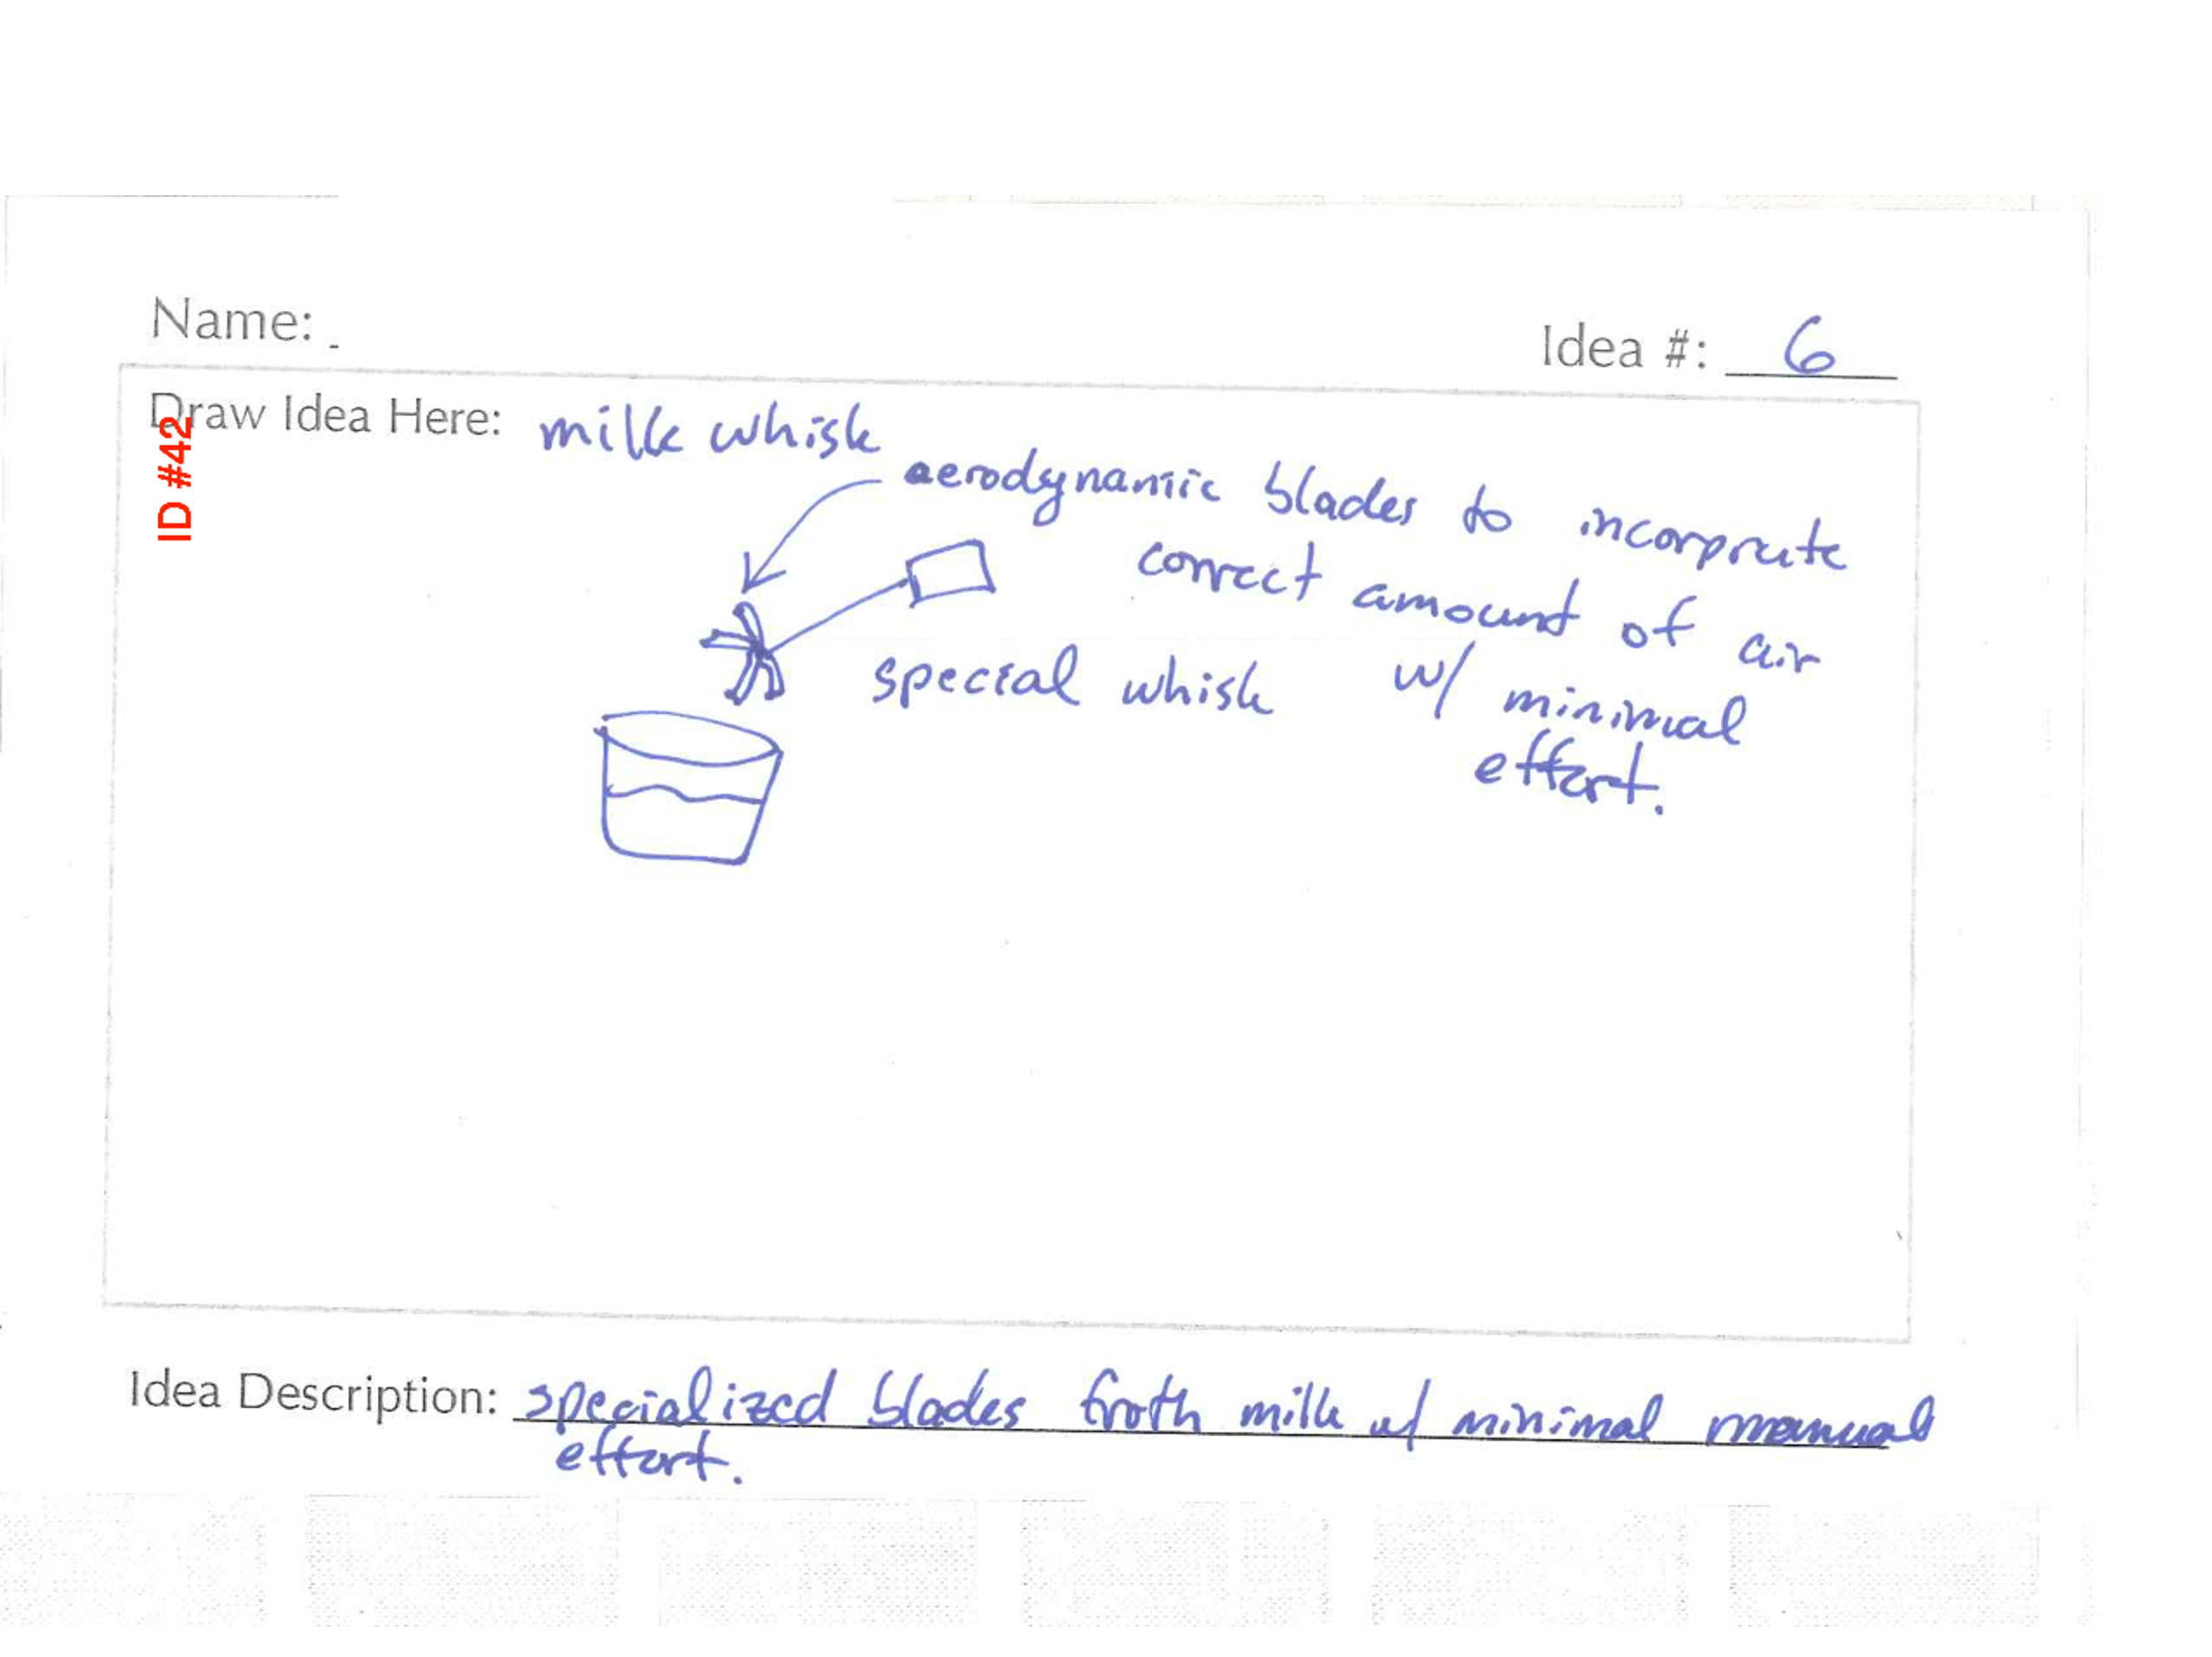 Name:
Idea #: 6
Draw Idea Here: milk whisk
ID #42
aerodynamic blades to incorprate
correct amount of air
special whisk w/ minimal
effort.
Idea Description: specialized blades froth milk w/ minimal manual
effort.